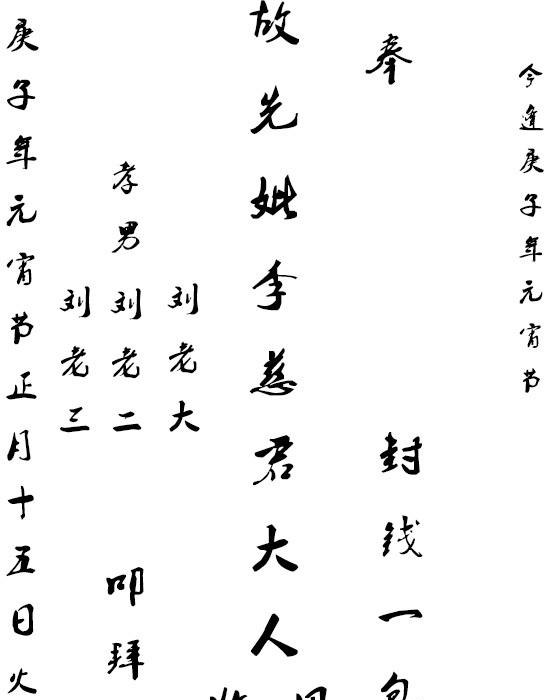 今逢庚子年元宵节
奉
封钱一包
故先妣李慈君大人
刘老大
孝男刘老二
刘老三
叩拜
庚子年元宵节正月十五日火